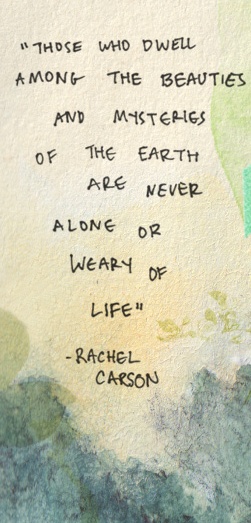 "THOSE WHO DWELL
AMONG THE BEAUTIES
AND MYSTERIES
OF THE EARTH
ARE NEVER
ALONE OR
WEARY OF
LIFE"
-RACHEL
CARSON